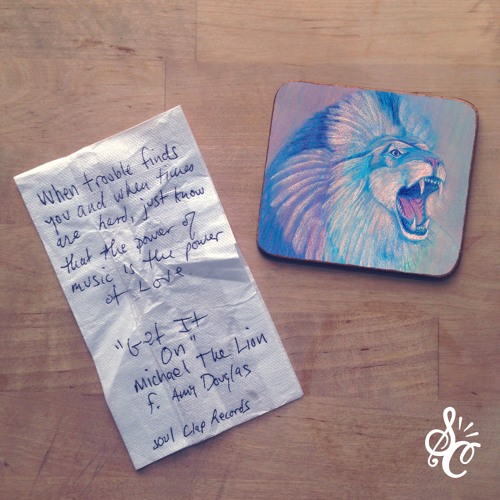 When trouble finds
you and when times
are hard, just know
that the power of
music is the power
of Love
"Get It
On"
Michael The Lion
f. Amy Douglas
Soul Clap Records
SC